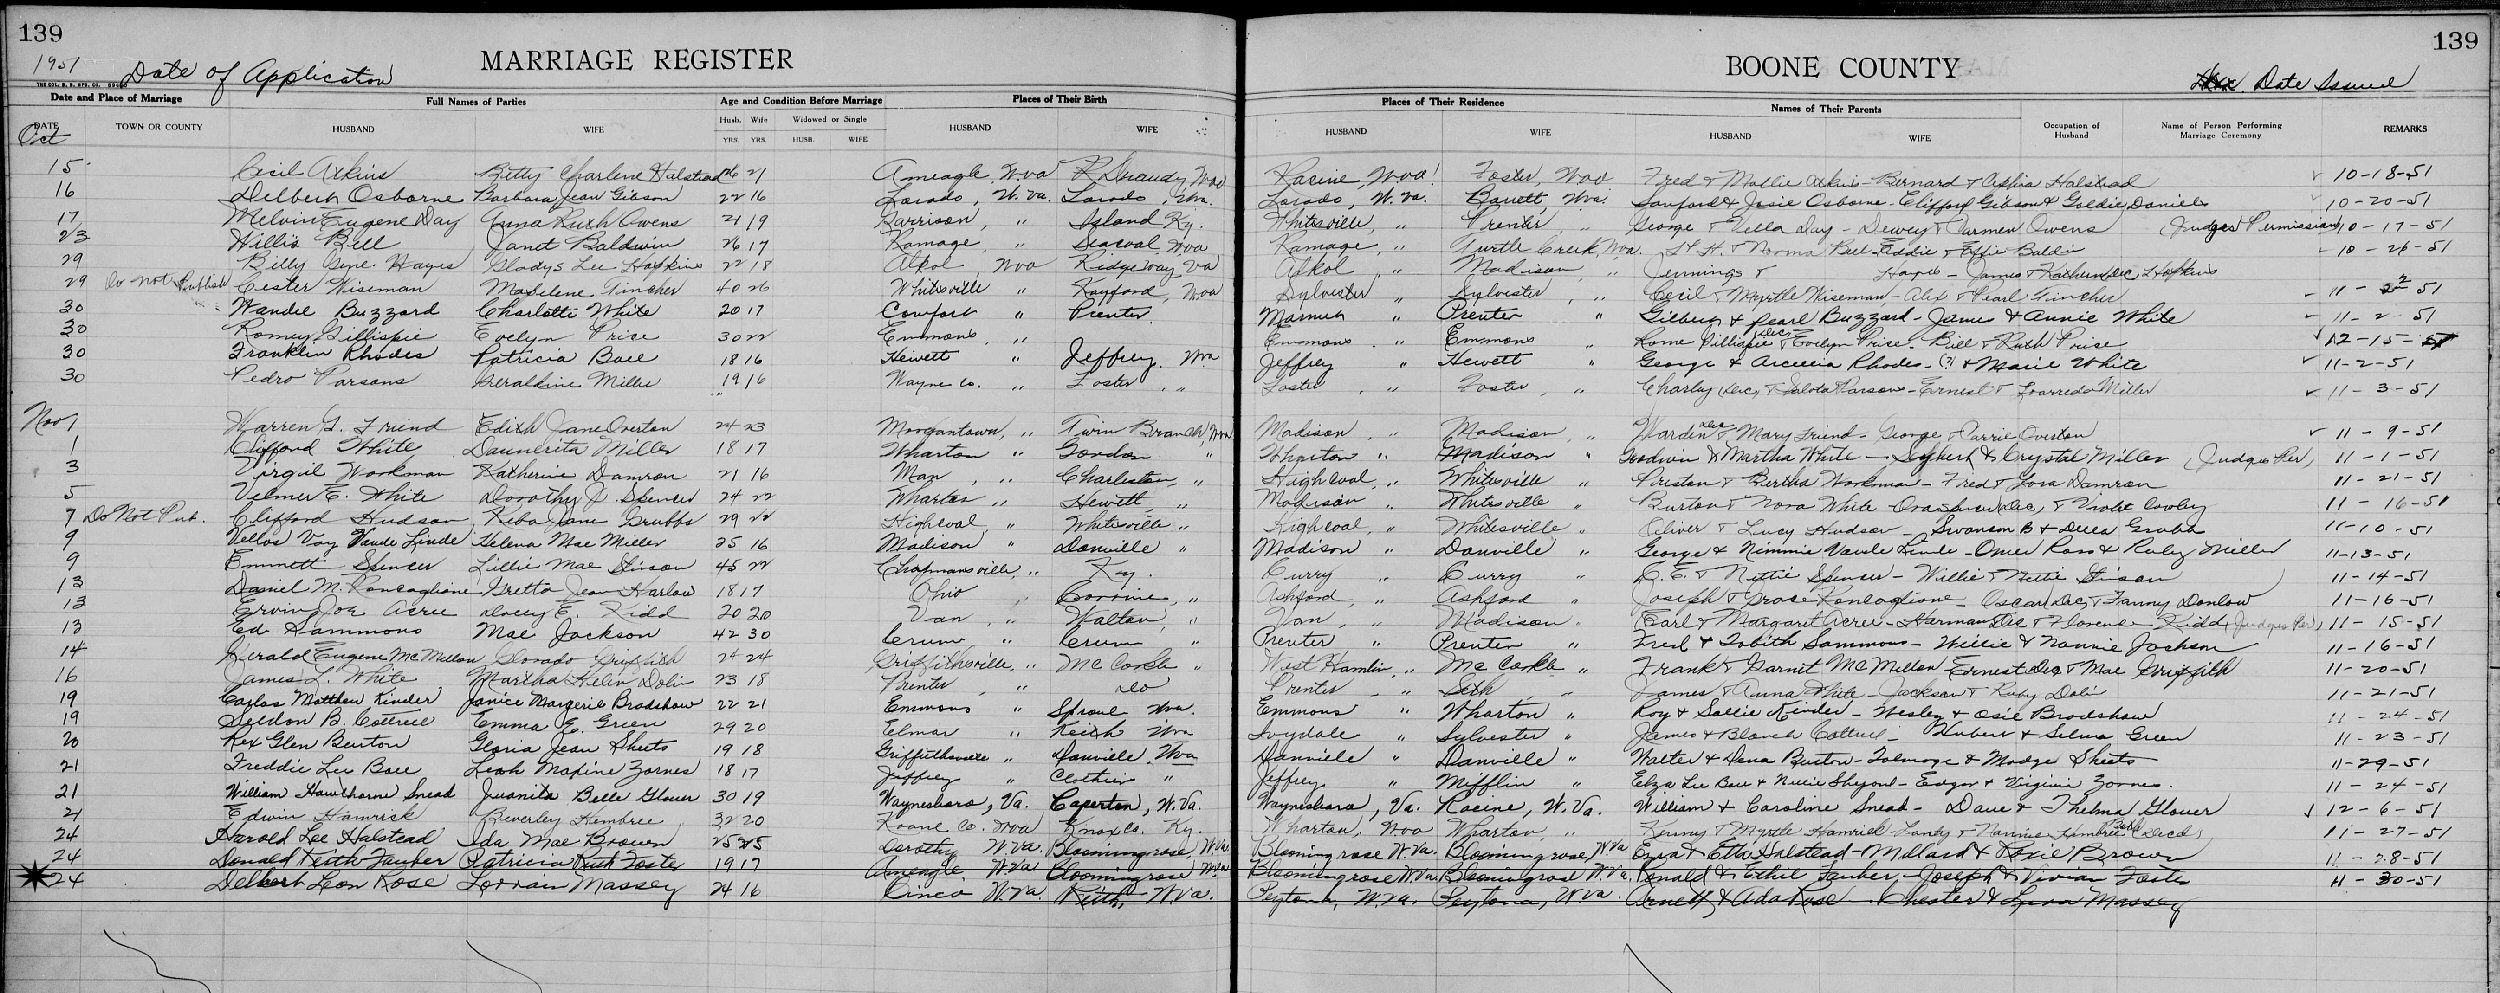 139
139
1951 Date of Application
MARRIAGE REGISTER
BOONE COUNTY
Date Issued
THE COL. B. B. MFG. CO.
Date and Place of Marriage Full Names of Parties Age and Condition Before Marriage Places of Their Birth Places of Their Residence Names of Their Parents Occupation of Husband Name of Person Performing Marriage Ceremony REMARKS
DATE TOWN OR COUNTY HUSBAND WIFE Husb. Wife Widowed or Single HUSBAND WIFE HUSBAND WIFE HUSBAND WIFE
YRS. YRS. HUSB. WIFE
Oct
15 Cecil Atkins Betty Charlene Halstead 26 21 Ameagle, W.va Racine, W.va Foster, W.va Fred & Mollie Atkins - Bernard & Halstead 10-18-51
16 Delbert Osborne Barbara Jean Gibson 22 16 Lorado, W.Va. Lorado, W.va. Lorado, W.Va. Barrett, W.va. Sanford & Josie Osborne - Clifford Gibson & Goldie Daniels 10-20-51
17 Melvin Eugene Day Anna Ruth Owens 21 19 Garrison, " Island Ky. Whitesville, " Prenter " George & Della Day - Dewey & Carmen Owens (Judges Permission) 10-17-51
23 Willis Bell Janet Baldwin 26 17 Ramage, " Seacoal W.va Ramage, " Turtle Creek, W.va. & Norma Bell - Eddie & Effie Baldwin 10-26-51
29 Billy Gene Hayes Gladys Lee Hopkins 22 18 Alkol, W.va Ridgeway Va Alkol, " Madison, " Jennings & Hayes - James & Kathern Dec, Hopkins
29 Do Not Publish Lester Wiseman Madelene Tincher 40 26 Whitesville " Kayford, W.va Sylvester " Sylvester, " Cecil & Myrtle Wiseman - Alex & Pearl Tincher 11-2-51
30 Wandle Buzzard Charlotte White 20 17 Comfort " Prenter Marmet " Prenter " Gilbert & Pearl Buzzard - James & Annie White 11-2-51
30 Romey Gillispie Evelyn Price 30 22 Emmons, " Emmons, " Emmons " Rome Gillispie (Dec) & Evelyn Price - Bill & Ruth Price 12-15-51
30 Franklin Rhodes Patricia Ball 18 16 Hewett " Jeffrey, W.va Jeffrey " Hewett " George & Rhodes - (?) & Marie White 11-2-51
30 Pedro Parsons Geraldine Miller 19 16 Wayne Co. " Foster, " Foster, " Foster, " Charley Dec, & Parsons - Ernest & Miller 11-3-51
Nov 1 Warren G. Friend Edith Jane Overton 24 23 Morgantown, " Twin Branch, W.va Madison, " Madison, " Warden Dec & Mary Friend - George & Carrie Overton 11-9-51
1 Clifford White Miller 18 17 Wharton " Gordon " Wharton " Madison " Goodwin & Martha White - & Crystal Miller (Judges Per) 11-1-51
3 Virgil Workman Katherine Damron 21 16 Man, " Charleston, " Highcoal, " Whitesville " Preston & Bertha Workman - Fred & Lora Damron 11-21-51
5 Velmer E. White Dorothy J. Spencer 24 22 Wharton " Hewett, " Madison " Whitesville " Burton & Nora White Dec, & Violet Cooley 11-16-51
7 Do Not Pub. Clifford Hudson Reba Jane Grubbs 29 22 Highcoal, " Whitesville " Highcoal, " Whitesville " Oliver & Lucy Hudson - Swanson B & Della Grubbs 11-10-51
9 Vellos Voy Vande Linde Helena Mae Miller 25 16 Madison " Danville " Madison " Danville " George & Nimmie Vande Linde - Omer Ross & Ruby Miller 11-13-51
9 Emmett Spencer Lillie Mae Stinson 45 22 Chapmansville, " Ky. Curry " Curry " & Nettie Spencer - Willie & Nettie Stinson 11-14-51
13 Daniel M. Roncaglione Gretta Jean Harlow 18 17 Ohio " Corrine, " Ashford, " Ashford " Joseph & Grace Roncaglione - Oscar (Dec) & Fanny Donlow 11-16-51
13 Erving Joe Acree Docey E. Kidd 20 20 Van, " Walton, " Van, " Madison " Earl & Margaret Acree - Harman Dec & Florence Kidd (Judges Per) 11-15-51
13 Ed Sammons Mae Jackson 42 30 Crum " Crum " Prenter " Prenter " Fred & Tobith Sammons - Willie & Nannie Jackson 11-16-51
14 Gerald Eugene McMillon Dorado Griffith 24 24 Griffithsville, " McCorkle " West Hamlin, " McCorkle " Frank & Garnet McMillon Ernest Dec & Mae Griffith 11-20-51
16 James L. White Martha Helen Dolin 23 18 Prenter, " do Prenter " Seth, " James & Anna White - Jackson & Ruby Dolin 11-21-51
19 Carlos Matthew Kinder Janice Margerie Bradshaw 22 21 Emmons " Sproul W.va. Emmons " Wharton " Roy & Sallie Kinder - Wesley & Osie Bradshaw 11-24-51
19 Seldon B. Cottrell Emma E. Green 29 20 Elmar " Keith W.va Ivydale " Sylvester " James & Blanch Cottrell - Hubert & Selma Green 11-23-51
20 Rex Glen Burton Gloria Jean Sheets 19 18 Griffithsville " Danville W.va Danville " Danville " Walter & Dena Burton - Talmage & Madge Sheets 11-29-51
21 Freddie Lee Ball Leah Maxine Zornes 18 17 Jeffrey " Clothier " Jeffrey " Mifflin " Elza Lee Ball & Nellie Shepard - Edgar & Virginia Zornes 11-24-51
21 William Hawthorne Snead Juanita Belle Glover 30 19 Waynesboro, Va. Caperton, W.Va. Waynesboro, Va. Racine, W.Va. William & Caroline Snead - Dave & Thelma Glover 12-6-51
21 Edwin Hamrick Beverley Hembree 32 20 Roane Co. W.va Knox Co. Ky. Wharton, W.va Wharton, " Kenny & Myrtle Hamrick - & Nannie Hembree (Both Decd) 11-27-51
24 Harold Lee Halstead Ida Mae Brown 25 25 Dorothy W.Va. Bloomingrose, W.Va. Bloomingrose W.Va. Bloomingrose, W.Va Ezra & Etta Halstead - Millard & Brown 11-28-51
24 Donald Keith Fauber Patricia Ruth Foster 19 17 Ameagle W.Va Bloomingrose W.va Bloomingrose W.Va. Bloomingrose W.Va. Ronald & Ethel Fauber - Joseph & Vivian Foster 11-30-51
24 Delbert Leon Rose Lorrain Massey 24 16 Binco W.Va. Keith, W.Va. Peytona, W.Va. Peytona, W.Va. Arnett & Ada Rose - Chester & Massey